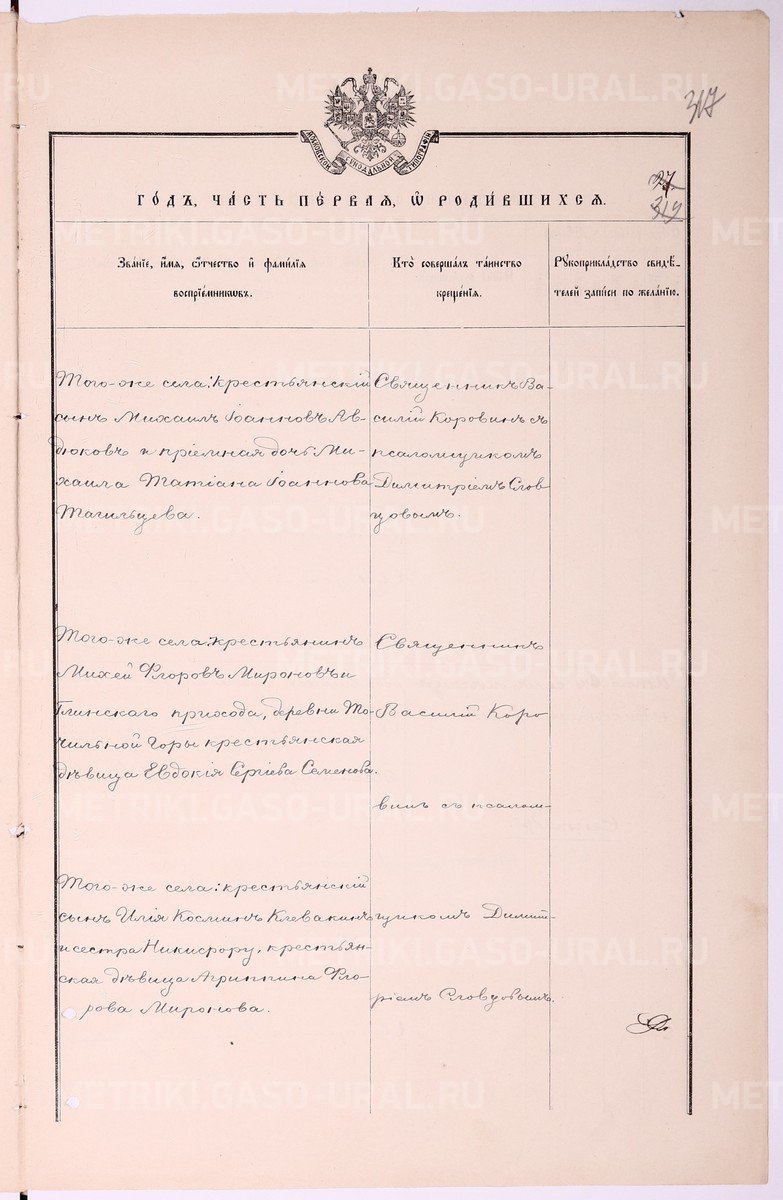 METRIKI.GASO-URAL.RU
317
МОСКОВСКОЙ СѴНОДАЛЬНОЙ ТИПОГРАФІИ
319
ГО́ДЪ, ЧА́СТЬ ПЕ́РВАЯ, Ѽ РОДИ́ВШИХСЯ.
Зва́ніе, и҆́мя, ѻ҆́тчество и҆ фами́лїя
воспрїе́мникѡвъ.
Кто̀ соверша́лъ та́инство
креще́нїя.
Рꙋкоприкла́дство свидѣ́-
телей за́писи по жела́нїю.
Того-же села: крестьянскій
сынъ Михаилъ Іоанновъ Ав-
дюковъ и пріемная дочь Ми-
хаила Татіана Іоаннова
Тагильцева.
Священникъ Ва-
силій Коровинъ съ
псаломщикомъ
Димитріемъ Слов
цовымъ.
Того-же села: крестьянинъ
Михей Флоровъ Мироновъ и
Глинскаго прихода, деревни То-
чильной Горы крестьянская
дѣвица Евдокія Сергіева Семенова.
Священникъ
Василій Коро
винъ съ псалом-
Того-же села: крестьянскій
сынъ Илія Косминъ Клевакинъ
и сестра Никифору, крестьян-
ская дѣвица Агриппина Фло-
рова Миронова.
щикомъ Димит
ріемъ Словцовымъ.